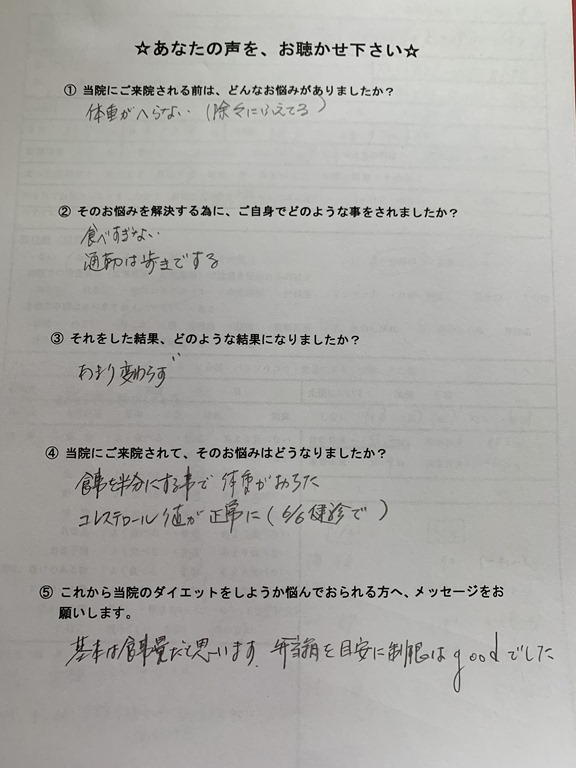 ☆あなたの声を、お聴かせ下さい☆
① 当院にご来院される前は、どんなお悩みがありましたか？
体重がへらない （除々にふえてる）
② そのお悩みを解決する為に、ご自身でどのような事をされましたか？
食べすぎない
通勤は歩きでする
③ それをした結果、どのような結果になりましたか？
あまり変わらず
④ 当院にご来院されて、そのお悩みはどうなりましたか？
食事を半分にする事で 体重がおちた
コレステロール値が正常に（6/6健診で）
⑤ これから当院のダイエットをしようか悩んでおられる方へ、メッセージをお
願いします。
基本は食事量だと思います。弁当箱を目安に制限はgoodでした